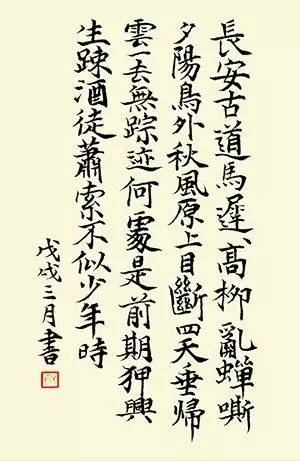 長安古道馬遲遲高柳亂蟬嘶
夕陽鳥外秋風原上目斷四天垂歸
雲一去無踪迹何處是前期狎興
生踈酒徒蕭索不似少年時
戊戌三月書